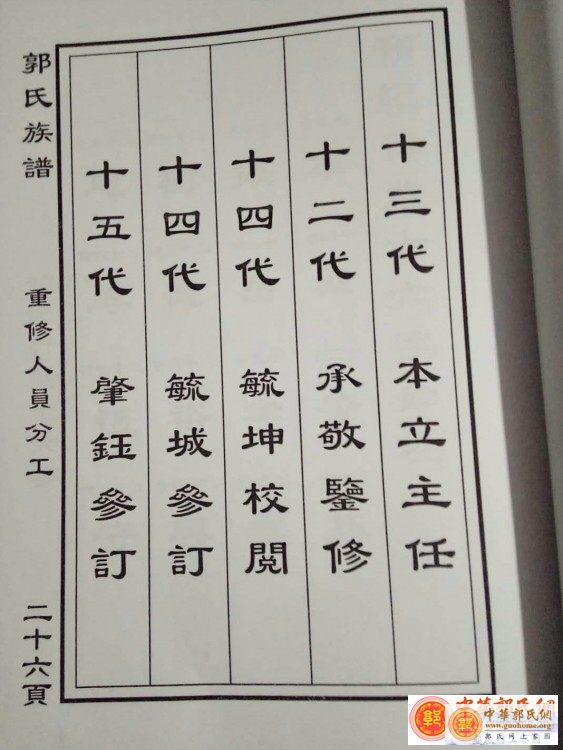 十三代 本立主任
十二代 承敬鑒修
十四代 毓坤校閲
十四代 毓城參訂
十五代 肇鈺參訂
郭氏族譜 重修人員分工 二十六頁
中華郭氏網
中華郭氏網
www.guohome.org
郭氏网上家园